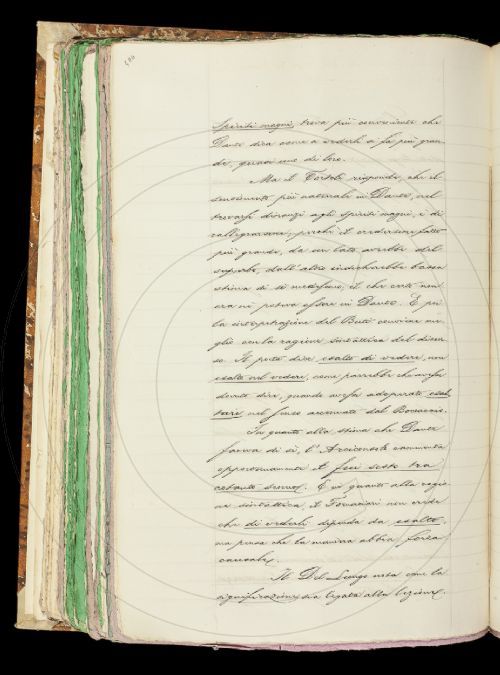 Spiriti magni, trova più conveniente che
Dante dica come a vederli si fa più gran
de, quasi uno di loro.
Ma il Tortoli risponde, che il
sentimento più naturale in Dante, nel
trovarsi dinanzi agli Spiriti magni, è di
rallegrarsene; perchè il credersene fatto
più grande, da un lato avrebbe del
superbo, dall'altro indicherebbe bassa
stima di sè medesimo, il che certo non
era nè poteva essere in Dante. E poi
la interpretazione del Buti conviene me
glio con la ragione sintattica del discor
so. Il poeta dice esalto di vedere, non
esalto nel vedere, come parrebbe che avesse
dovuto dire, quando avesse adoperato esal
tare nel senso accennato dal Boccaccio.
In quanto alla stima che Dante
faceva di sè, l'Arciconsolo rammenta
opportunamente il feci sesto tra
cotanto senno. E in quanto alla ragio
ne sintattica, il Fornaciari non crede
che di vederli dipenda da esalto,
ma pensa che la maniera abbia forza
causale.
Il Del Lungo nota come la
significazione sia legata alla lezione.